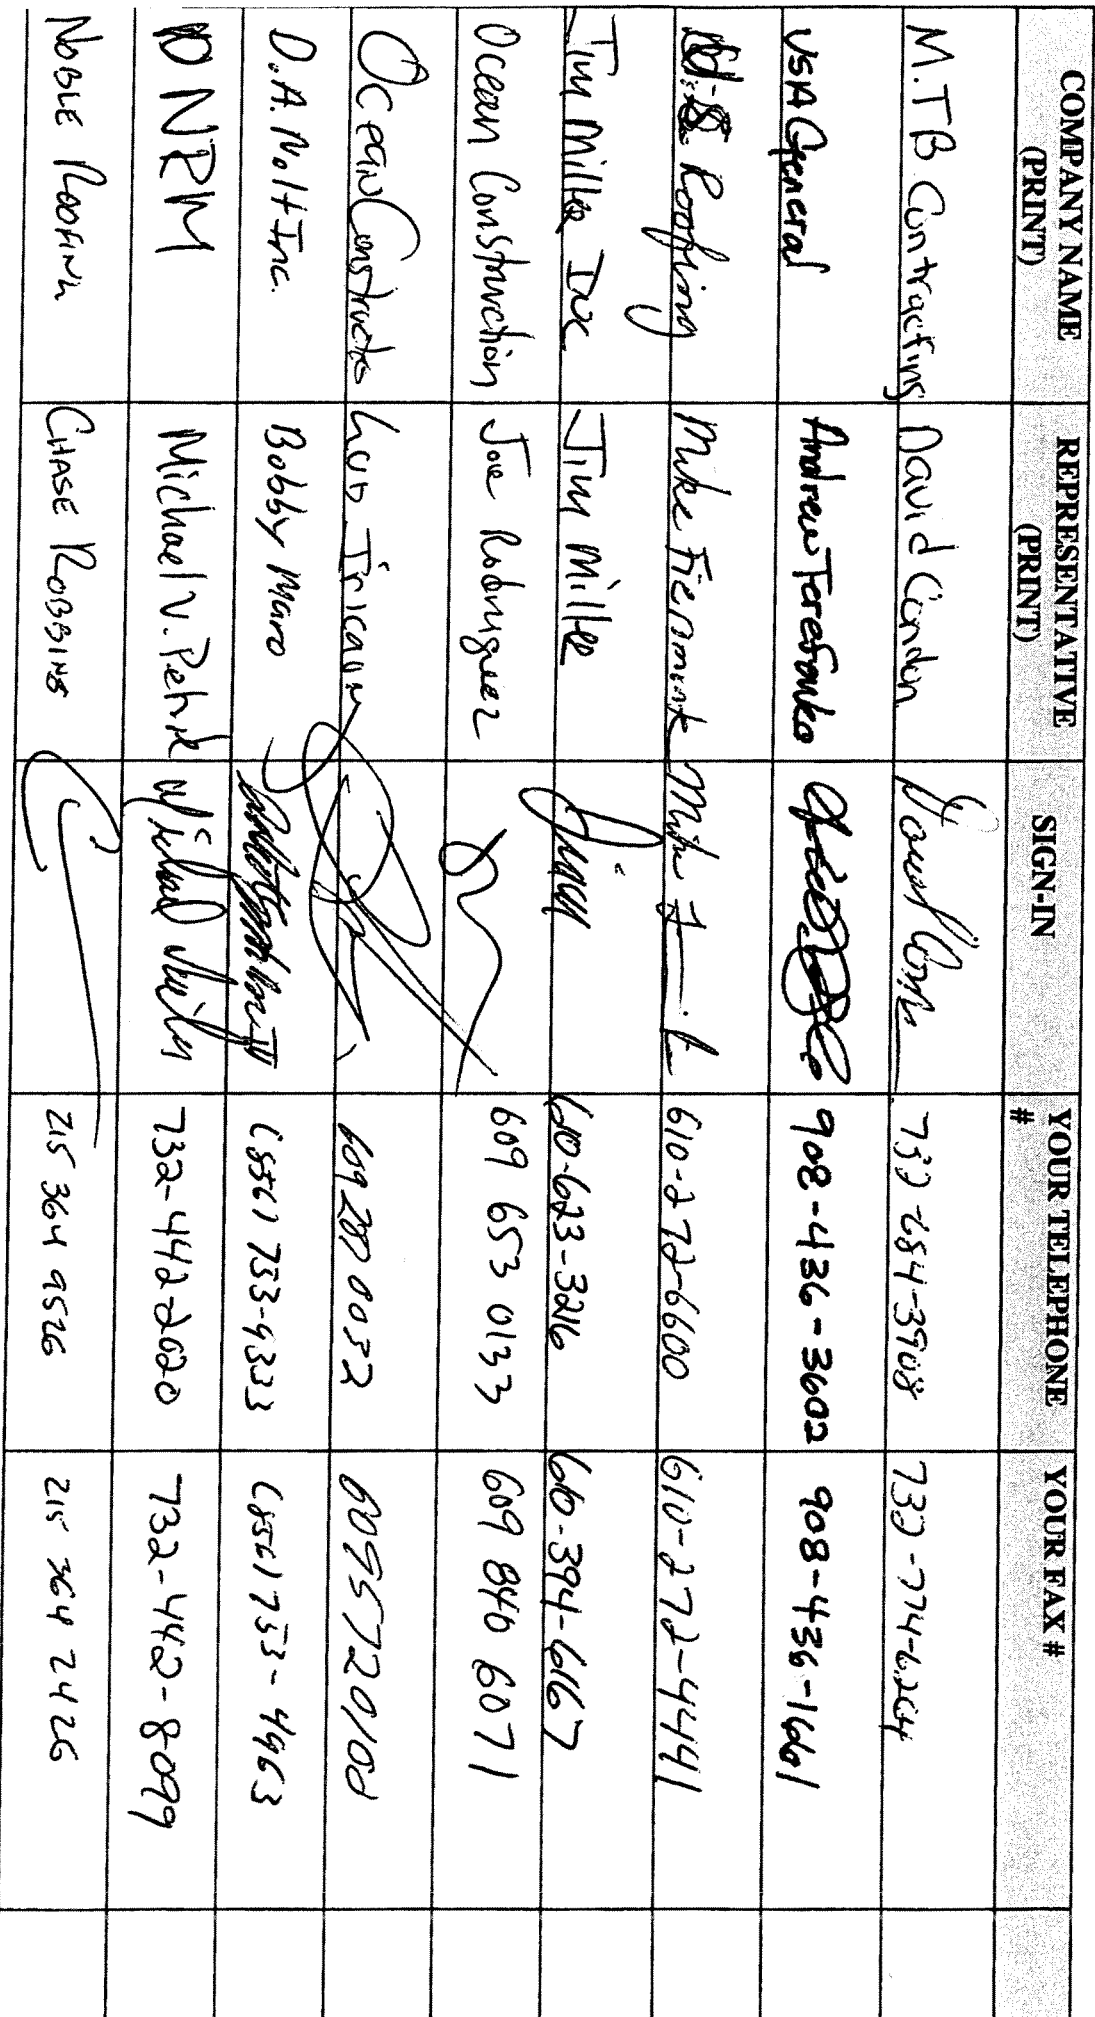 COMPANY NAME (PRINT) REPRESENTATIVE (PRINT) SIGN-IN YOUR TELEPHONE # YOUR FAX #
M.T B Contracting David Condon 732-684-3908 732-774-6264
USA General Andrew Terefenko 908-436-3602 908-436-1661
Roofing Mike 610-272-6600 610-272-4441
Jim Miller Inc Jim Miller Jim 610-623-3216 610-394-6167
Ocean Construction Joe Rodriguez 609 653 0133 609 840 6071
Ocean Constructio 609 280 0032 6095720100
D.A. Nolt Inc. Bobby Maro (856) 753-9333 (856) 753-4963
NRM Michael V. Petrik 732-442-2020 732-442-8099
NOBLE ROOFING CHASE ROBBINS 215 364 9526 215 364 2426